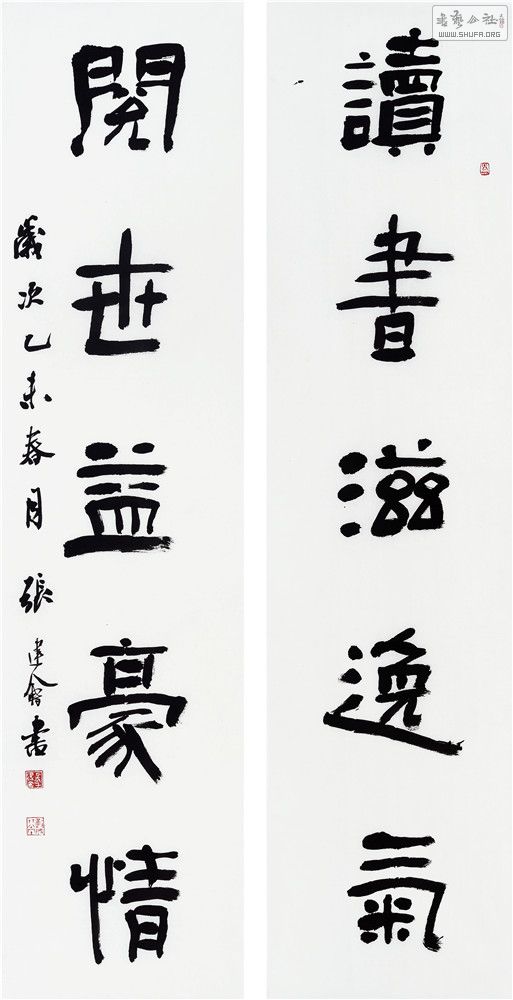 讀書滋逸氣
閱世益豪情
歲次乙未春月 張建會書
書藝公社
WWW.SHUFA.ORG